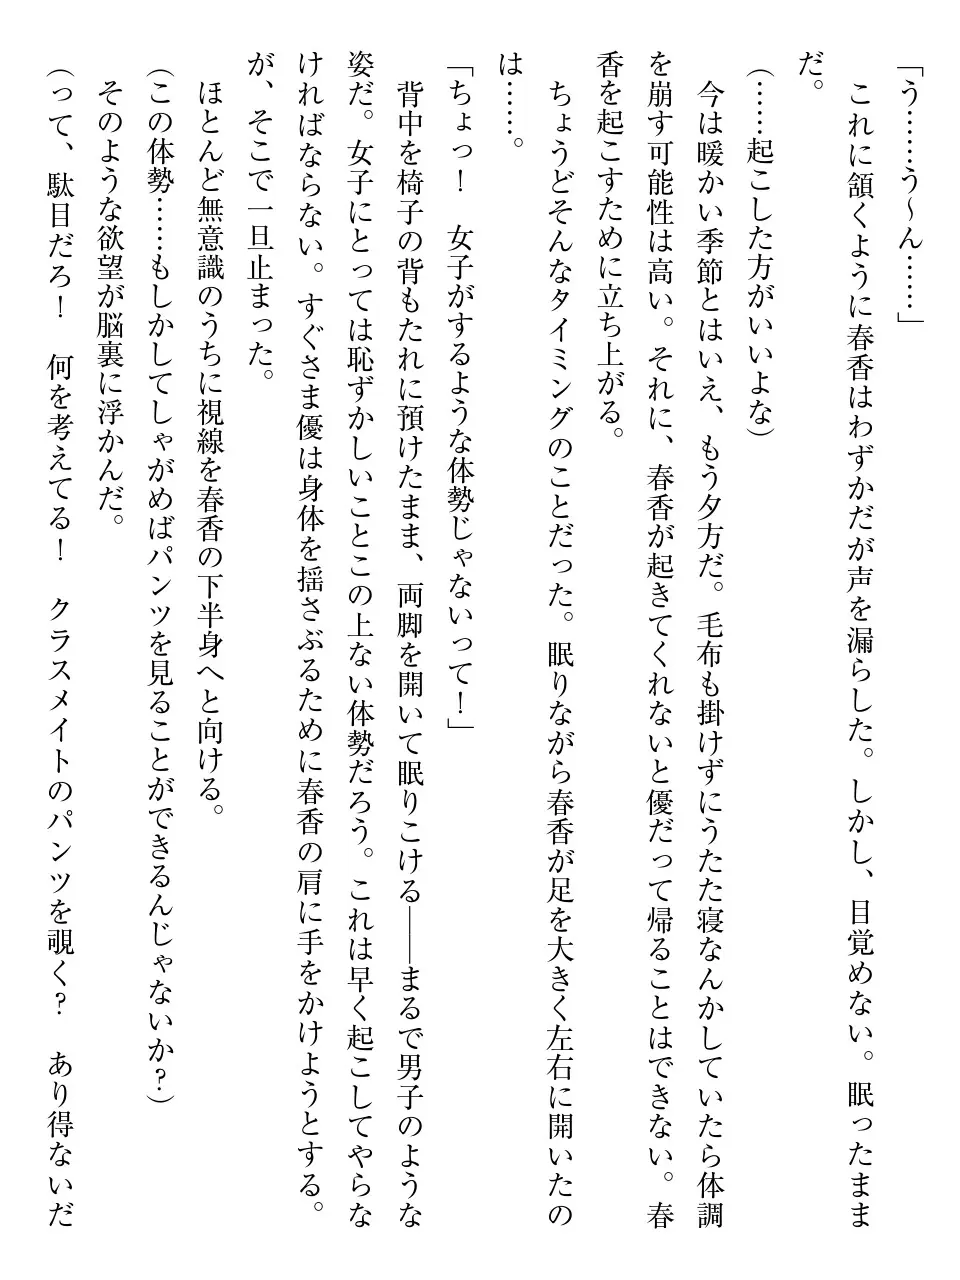 「う……う～ん……」
これに頷くように春香はわずかだが声を漏らした。しかし、目覚めない。眠ったまま
だ。
（……起こした方がいいよな）
今は暖かい季節とはいえ、もう夕方だ。毛布も掛けずにうたた寝なんかしていたら体調
を崩す可能性は高い。それに、春香が起きてくれないと優だって帰ることはできない。春
香を起こすために立ち上がる。
ちょうどそんなタイミングのことだった。眠りながら春香が足を大きく左右に開いたの
は……。
「ちょっ！　女子がするような体勢じゃないって！」
背中を椅子の背もたれに預けたまま、両脚を開いて眠りこける――まるで男子のような
姿だ。女子にとっては恥ずかしいことこの上ない体勢だろう。これは早く起こしてやらな
ければならない。すぐさま優は身体を揺さぶるために春香の肩に手をかけようとする。
が、そこで一旦止まった。
ほとんど無意識のうちに視線を春香の下半身へと向ける。
（この体勢……もしかしてしゃがめばパンツを見ることができるんじゃないか？）
そのような欲望が脳裏に浮かんだ。
（って、駄目だろ！　何を考えてる！　クラスメイトのパンツを覗く？　あり得ないだ